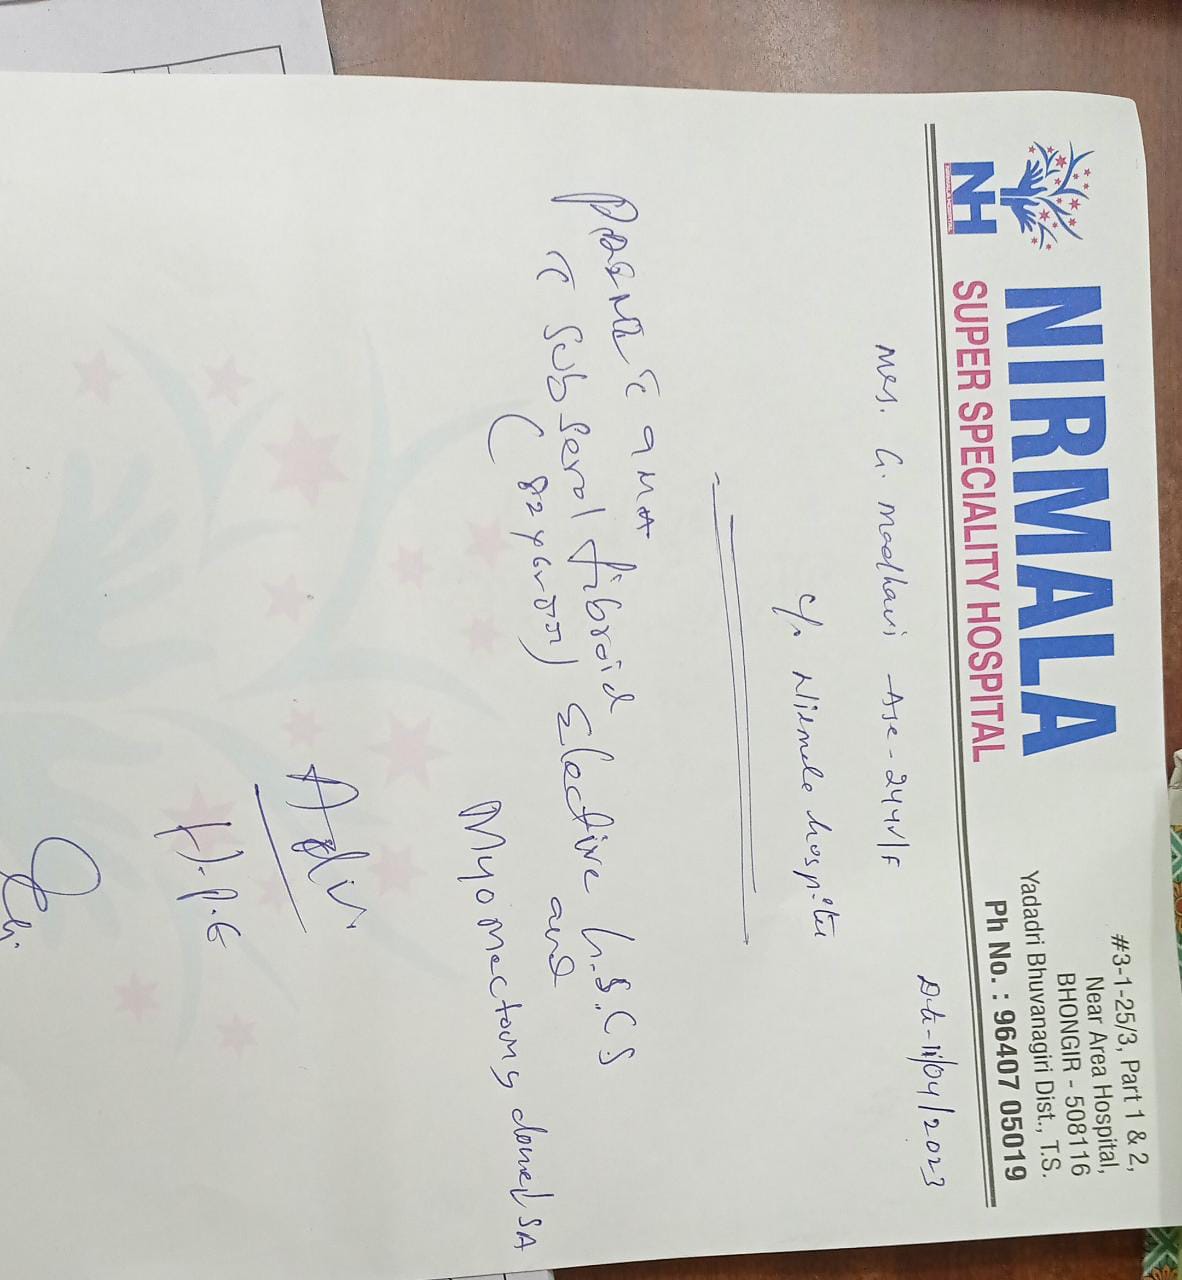 NIRMALA
SUPER SPECIALITY HOSPITAL
NH
#3-1-25/3, Part 1 & 2,
Near Area Hospital,
BHONGIR - 508116
Yadadri Bhuvanagiri Dist., T.S.
Ph No. : 96407 05019
Dt-11/04/2023
Mrs. G. Madhavi -Age-24yr/F
c/o Nirmala hospital
c̄ 9 MA
c̄ Sub seral fibroid Elective L.S.CS
and
Myomectomy done/SA
Adv
H.P.E